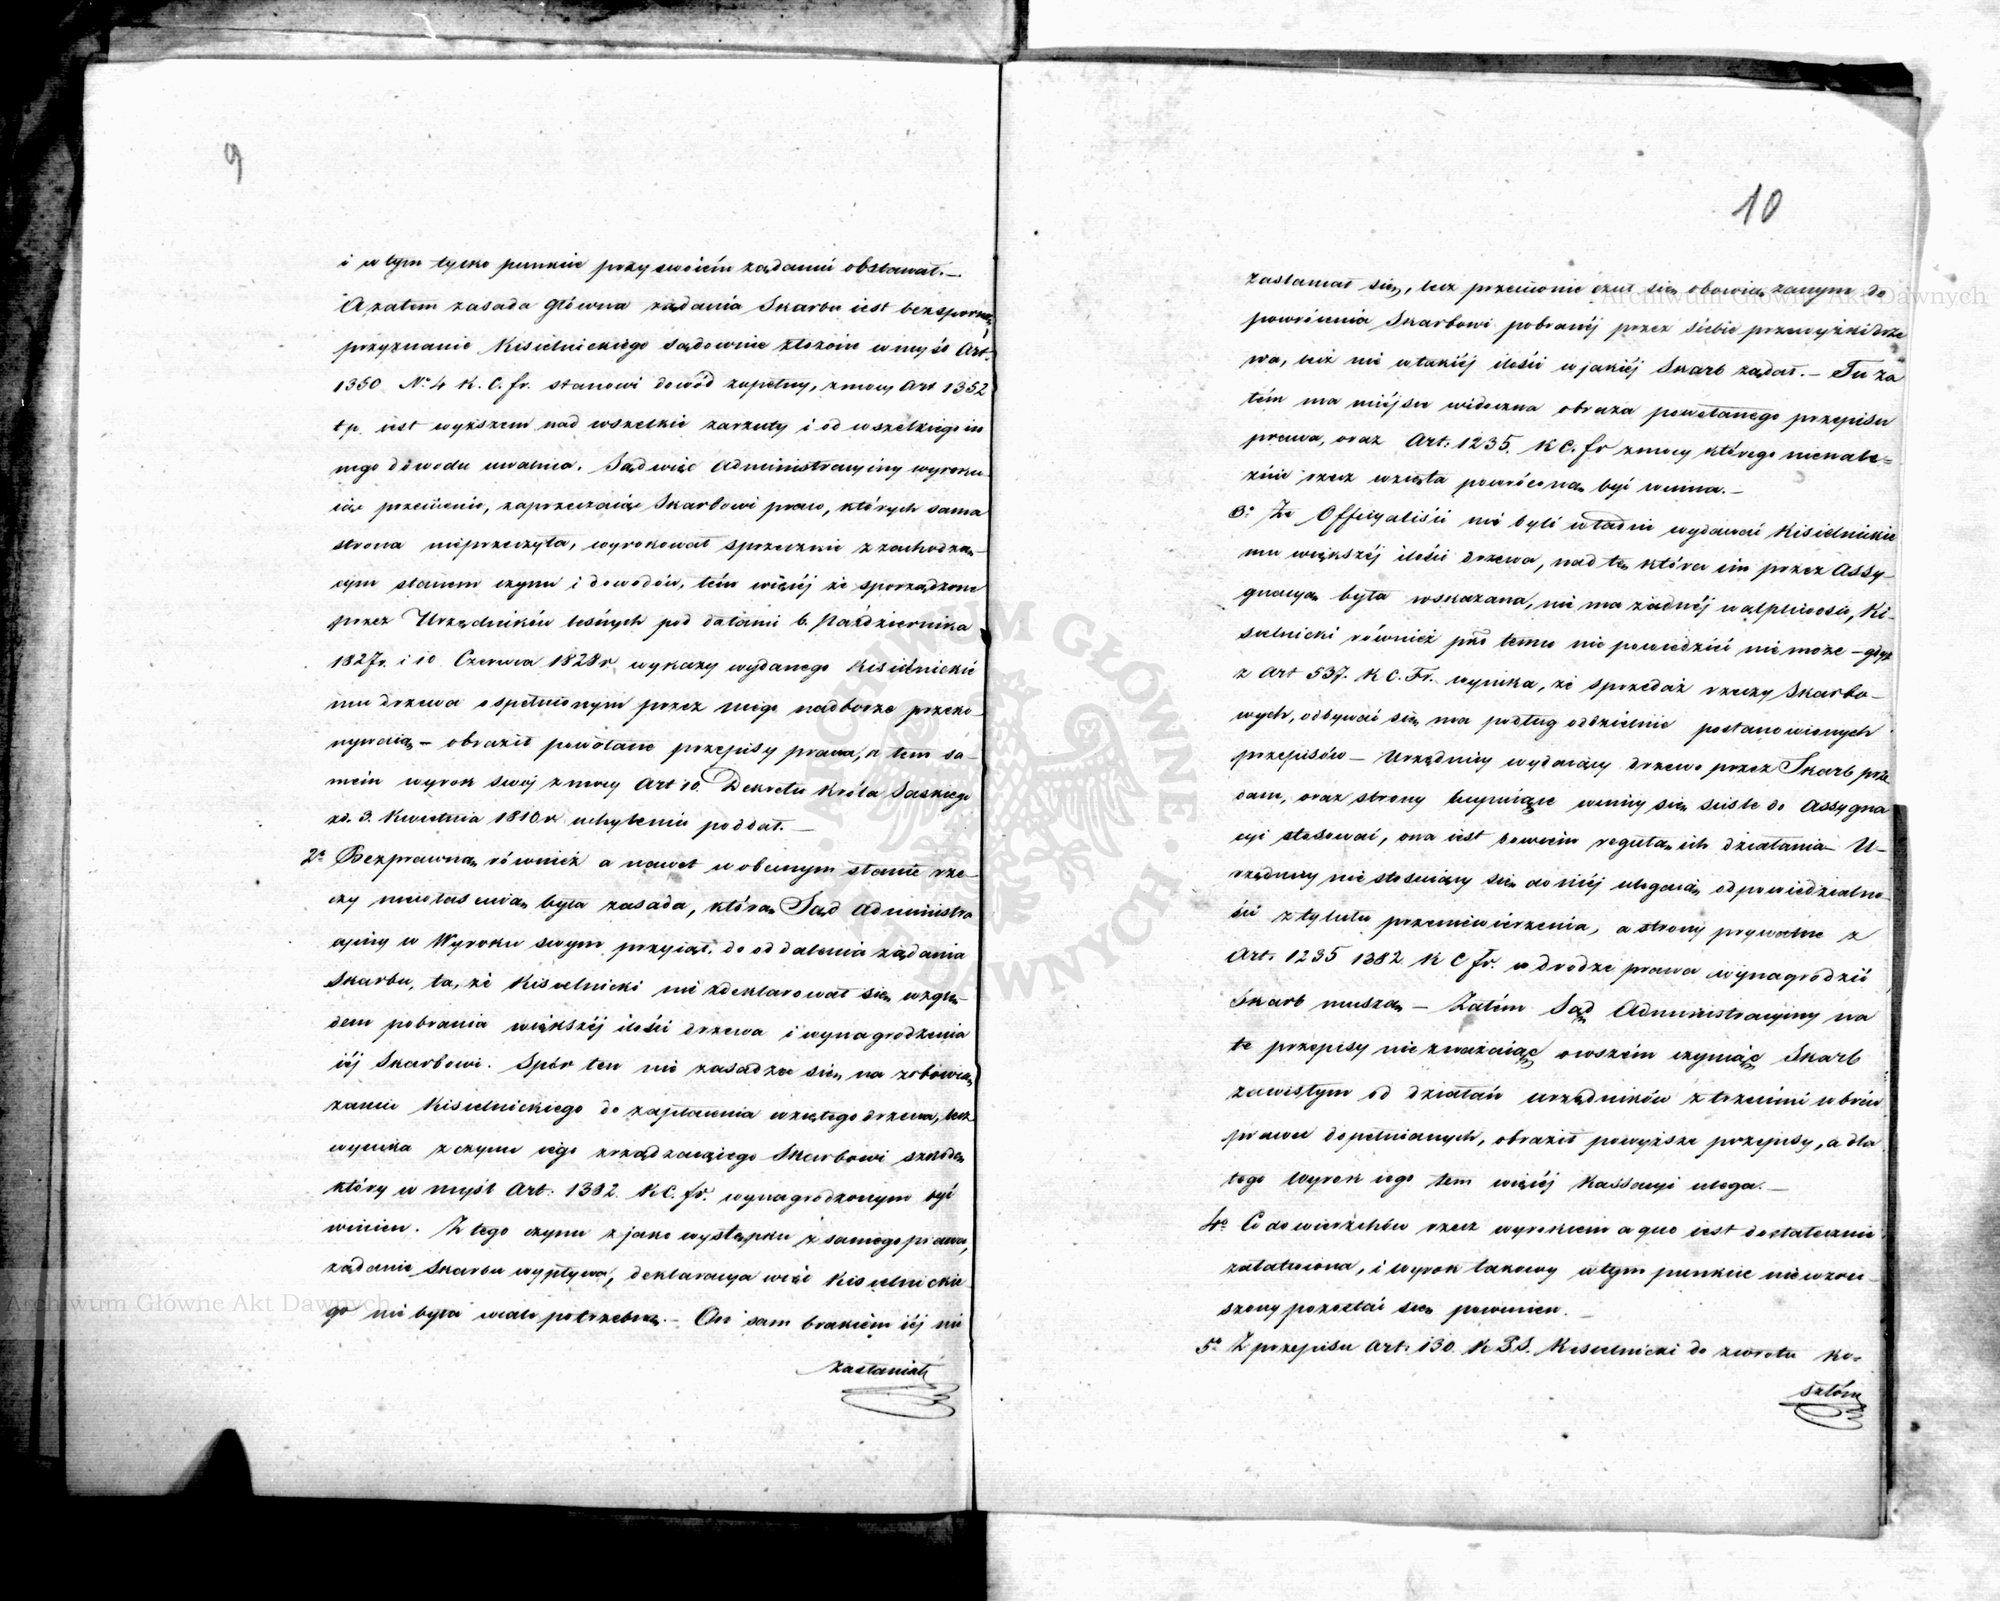 9
i w tym tylko punkcie przy swoićm żądaniu obstawał.—
A zatem zasada główna żądania Skarbu iest bezsporną,
przyznanie Kisielnickiego sądownie złożone w myśl Art.
1350 No 4 K. C. fr. stanowi dowód zupełny, z mocy Art 1352
t p. iest wyższem nad wszelkie zarzuty i od wszelkiego in
nego dowodu uwalnia. Sąd więc Administracyiny wyroku
iąc przeciwnie, zaprzeczaiąc Skarbowi praw, których sama
strona nieprzeczyła, wyrokował sprzecznie z zachodzą-
cym stanem czynu i dowodów, tém więcéj że sporządzone
przez Urzędników leśnych pod datami 6. Października
1827r. i 10 Czerwca 1828r. wykazy wydanego Kisielnickie
mu drzewa o spełnionym przez niego nadborze przeko-
nywaią — obraził powołane przepisy prawa, a tem sa-
mém wyrok swój z mocy Art 10. Dekretu Króla Saskiego
zd. 3. Kwietnia 1810r uchyleniu poddał.—
2o Bezprawną również a nawet w obecnym stanie rze-
czy niewłaściwą była zasada, którą Sąd Administra
cyiny w Wyroku swym przyiął, do oddalenia żądania
Skarbu, ta, że Kisielnicki nie zdeklarował się wzglę-
dem pobrania większéj ilości drzewa i wynagrodzenia
iéj Skarbowi. Spór ten nie zasadza się na zobowią
zaniu Kisielnickiego do zapłacenia wziętego drzewa, lecz
wynika z czynu iego zrządzaiącego Skarbowi szkodę
który w myśl Art. 1382. K C. fr. wynagrodzonym być
winien. Z tego czynu z jako występku z samego prawa,
żądanie Skarbu wypływa, deklaracya więc Kisielnickie-
go nie była wcale potrzebną.— On sam brakiem iéj nie
zasłaniał
10
zasłaniał się, lecz przeciwnie czuł się obowiązanym do
powrócenia Skarbowi pobranéj przez siebie przewyżki drze
wa, lecz nie w takiéj ilości w jakiéj Skarb żądał.— Tu za
tém ma miéjsce widoczna obraza powołanego przepisu
prawa, oraz Art: 1235. K C. fr z mocy którego nienale=
żnie rzecz wzięta powróconą być winna.—
3o Że Officyaliści nie byli władni wydawać Kisielnickie
mu większéj ilości drzewa, nad tę która im przez Assy-
gnacyą była wskazana, nie ma żadnéj wątpliwości, Ki-
sielnicki również prze temu nie powiedzieć nie może — gdyż
z Art 537. K C. Fr. wynika, że sprzedaż rzeczy Skarbo-
wych, odbywać się ma podług oddzielnie postanowionych
przepisów — Urzędnicy wydaiący drzewo przez Skarb prze
dane, oraz strony kupuiące winny się ściśle do Assygna
cyi stosować, ona iest bowiem regułą ich działania— U-
rzędnicy nie stosuiący się do niéj ulegaią odpowiedzialno-
ści z tytułu przeniewierzenia, a strony prywatne z
Art. 1235 1382. K C fr. w drodze prawa wynagrodzić
Skarb muszą — Zatém Sąd Administracyiny na
te przepisy nie zważaiąc owszém czyniąc Skarb
zawisłym od działań urzędników z trzeciemi wbrew
prawu dopełnianych, obraził powyższe przepisy, a dla
tego Wyrok iego tem więcéj Kassacyi ulega.—
4o Co do wierzchów rzecz wyrokiem a quo iest dostatecznie
załatwiona, i wyrok takowy w tym punkcie niewzru-
szony pozostać się powinien.—
5o Z przepisu Art: 130. K P.S. Kisielnicki do zwrotu ko=
sztów
Archiwum Główne Akt Dawnych
Archiwum Główne Akt Dawnych
ARCHIWUM GŁÓWNE AKT DAWNYCH